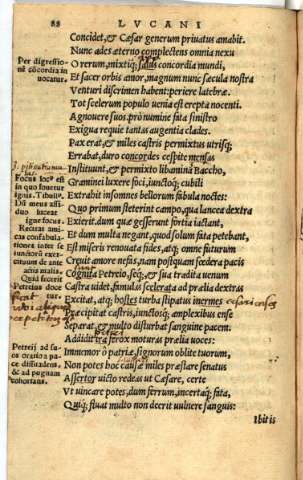 88 LVCANI
Concidet, & Cæsar generum priuatus amabit.
Nunc ades æterno complectens omnia nexu
Per digressio O rerum, mixtiq; salus concordia mundi,
nē cōcordia in Et sacer orbis amor, magnum nunc sæcula nostra
uocatur. Venturi discrimen habent: periere latebræ.
Tot scelerum populo uenia est erepta nocenti.
Agnouere suos: prò numine fata sinistro
Exigua requie tantas augentia clades.
Pax erat, & miles castris permixtus utrisq;
Errabat, duro concordes cespite mensas
Instituunt, & permixto libamina Baccho,
Focus locꝰ est Graminei luxere foci, iunctoq; cubili
in quo fouetur Extrahit insomnes bellorum fabula noctes:
ignis. Tibullꝰ. Quo primum steterint campo, qua lancea dextra
Dū meus assi
duo luceat Exierit. dum quæ gesserunt fortia iactant,
igne focus. Et dum multa negant, quod solum fata petebant,
Recitat ami
cas confabula Est miseris renouata fides, atq; omne futurum
tiones inter se Creuit amore nefas, nam postquam fœdera pacis
sunt
Cognita Petreio, seq;, & sua tradita uenum
Castra uidet, famulas scelerata ad prælia dextras
Excitat, atq; hostes turba stipatus inermes
Præcipitat castris, iunctosq; amplexibus ense
Separat, & multo disturbat sanguine pacem.
Addidit ira ferox motura prælia uoces:
Petreij ad su Immemor ò patriæ, signorum oblite tuorum,
os oratio a pa
ce dissuadens, Non potes hoc causæ miles præstare senatus
& ad pugnam Assertor uicto redeas ut Cæsare, certe
cohortans. Vt uincare potes, dum ferrum, incertaq; fata,
Quiq; fluat multo non deerit uulnere sanguis:
Ibitis